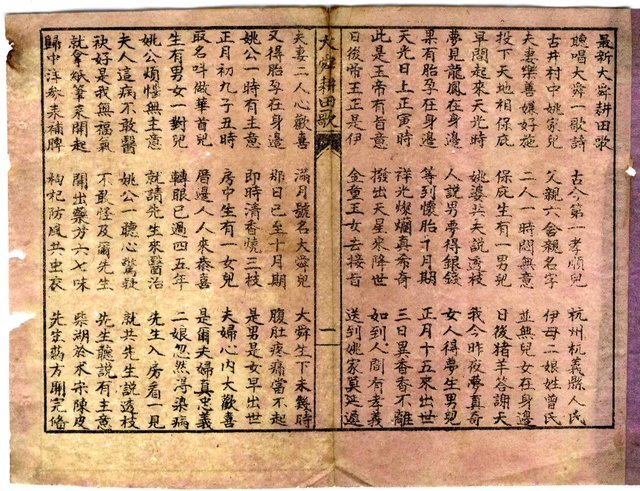 最新大舜耕田歌
聽唱大舜一歌詩　古今第一孝順兒　杭州杭義縣人氏
古井村中姚家兒　父親六舍親名字　伊母二娘姓曾氏
夫妻樂善嫌好施　二人一時間無意　並無兒女在身邊
投下天地相保庇　保庇生有一男兒　日後猪羊答謝天
早間起來天光時　姚婆共夫說透枝　我今昨夜夢真奇
夢見龍鳳在身邊　人說男夢得銀錢　女人得夢生男兒
果有胎孕在身邊　等到懷胎十月期　正月十五來出世
天光日上正寅時　祥光燦爛真希奇　三日異香香不離
此是玉帝有主意　撥出天星來降世　如到人間有孝義
日後帝王正是伊　金童玉女去接旨　送到姚家真延遲
大舜耕田歌　一
夫妻二人心歡喜　滿月號名大舜兒　大舜生下未幾時
又得胎孕在身邊　那日已至十月期　腹肚疼痛當不起
姚公一時有主意　即時清香燒三枝　是男是女早出世
正月初九子丑時　房中生有一女兒　夫婦心內大歡喜
取名叫做華首兒　厝邊人人來恭喜　是爾夫婦真忠義
生有男女一對兒　轉眼已過四五年　二娘忽然得染病
姚公煩惱無主意　就請先生來醫治　先生入房看一見
夫人這病不敢醫　姚公一聽心驚疑　就共先生說透枝
袂好是我無福氣　不敢怪及爾先生　先生聽說有主意
就拿紙筆來開起　開出藥方六七味　柴湖於朮宋陳皮
歸中洋參來補脾　枸杞防風共虫衣　先生藥方開完備